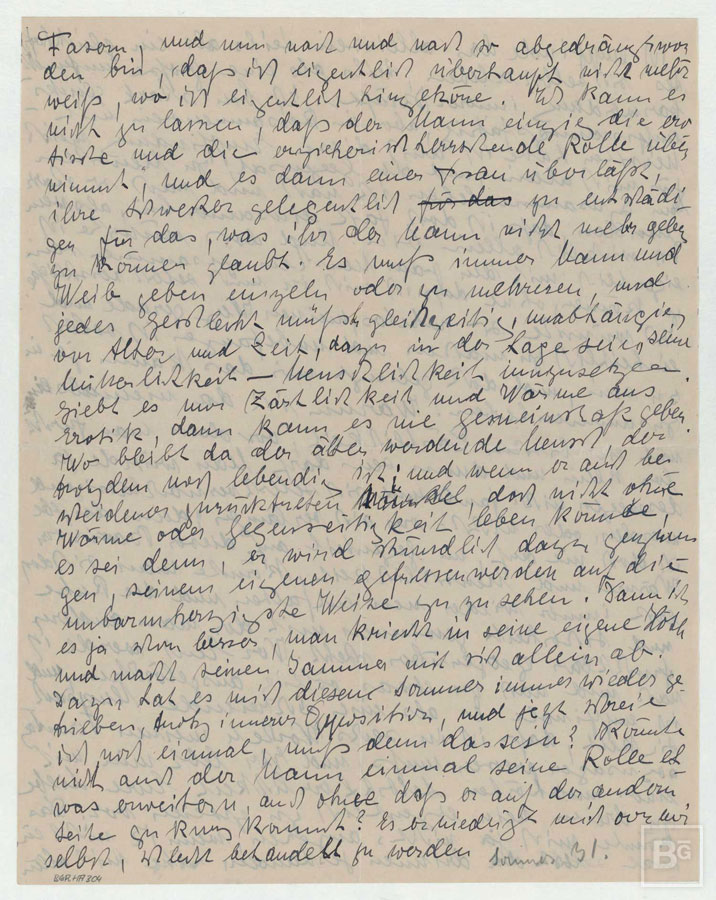 Fasern, und nun nach und nach so abgedrängt wor
den bin, daß ich eigentlich überhaupt nicht mehr
weiß, wo ich eigentlich hingehöre. Ich kann es
nicht zu lassen, daß der Mann einzig die ero
tische und die erzieherisch herrschende Rolle über
nimmt, und es dann einer Frau überläßt,
ihre Schwester gelegentlich für das zu entschädi
gen für das, was ihr der Mann nicht mehr geben
zu können glaubt. Es muß immer Mann und
Weib geben einzeln oder zu mehreren, und
jedes Geschlecht müßte gleichzeitig, unabhängig
von Alter und Zeit, dazu in der Lage sein, seine
Mütterlichkeit – Menschlichkeit umzusetzen.
Giebt es nur Zärtlichkeit und Wärme aus
Erotik, dann kann es nie Gemeinschaft geben.
Wo bleibt da der älter werdende Mensch der
trotzdem noch lebendig ist; und wenn er auch be
scheidener zurücktreten, doch nicht ohne
Wärme oder Gegenseitigkeit leben könnte,
es sei denn, er wird stündlich dazu gezwun
gen, seinem eigenen gefressen werden auf die
unbarmherzigste Weise zu zu sehen. Dann ist
es ja schon besser, man kriecht in seine eigene Höhle
und macht seinen Jammer mit sich allein ab.
Dazu hat es mich diesen Sommer immer wieder ge
trieben, trotz innerer Opposition, und jetzt schreie
ich noch einmal, muß denn das sein? Könnte
nicht auch der Mann einmal seine Rolle et
was erweitern, auch ohne daß er auf der andern
Seite zu kurz kommt? Es erniedrigt mich vor mir
selbst, schlecht behandelt zu werden Sommer 31.
BG